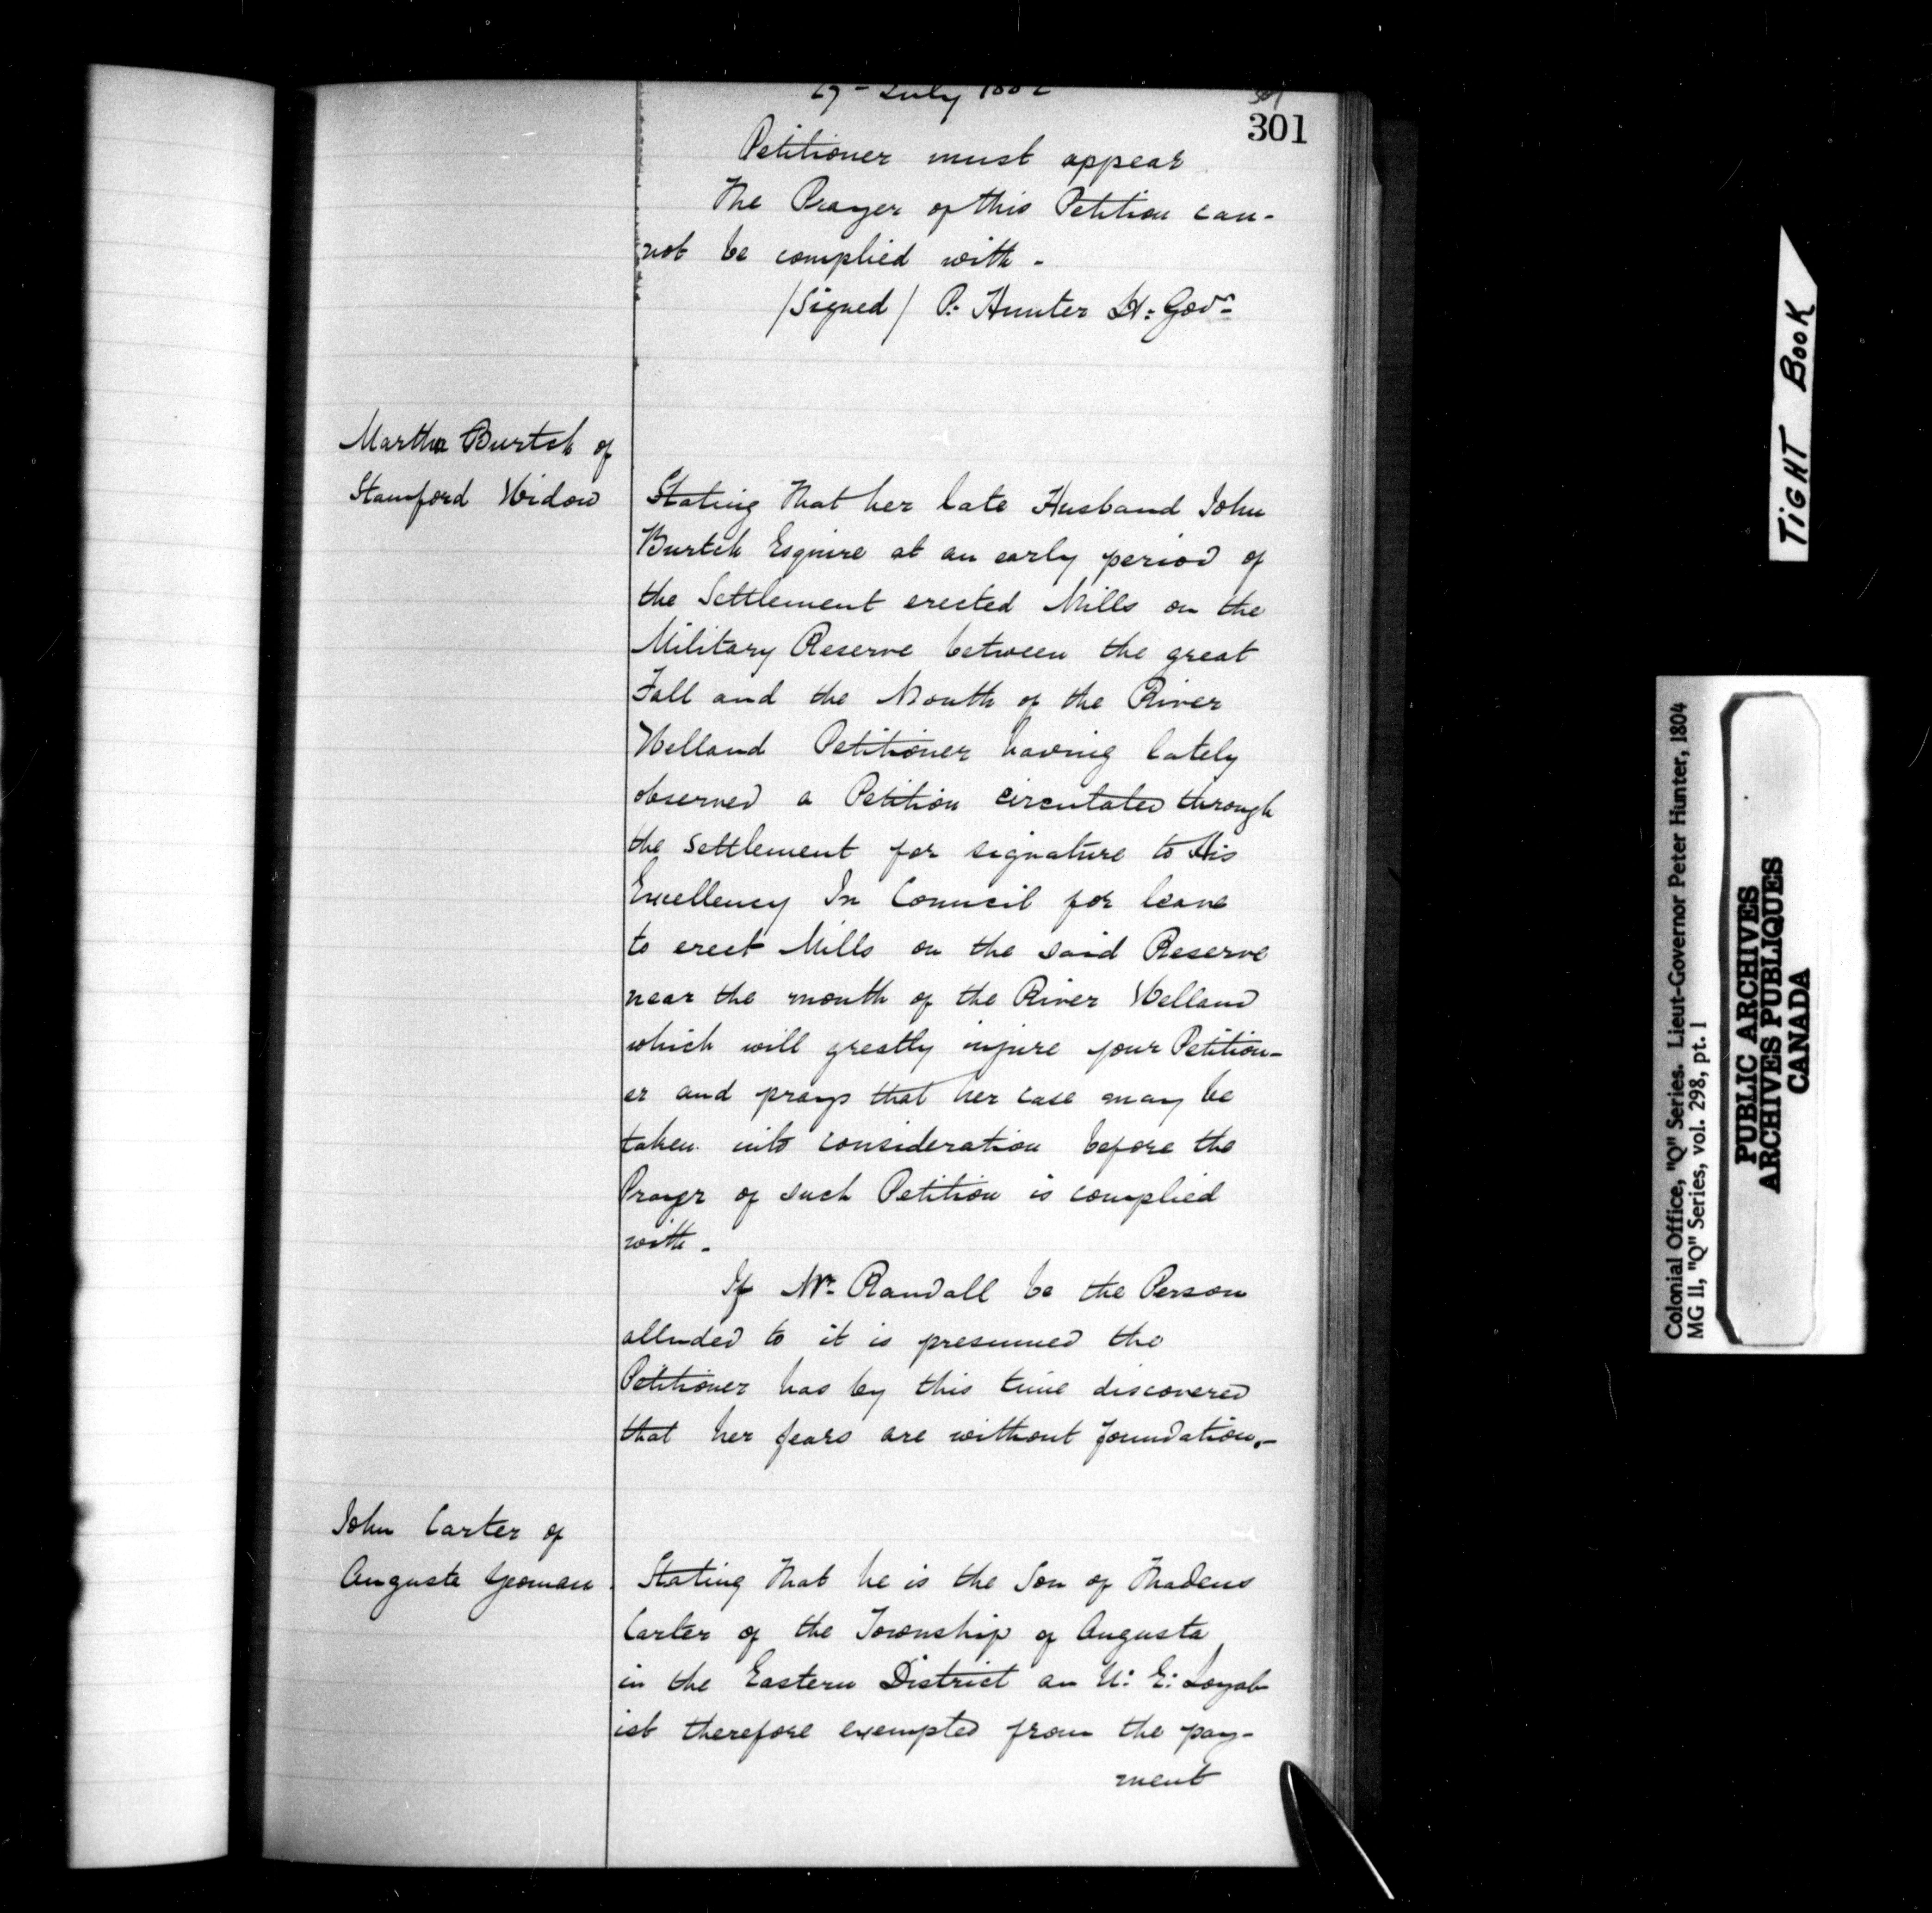 301
Petitioner must appear
The Prayer of this Petition can-
not be complied with -
/Signed/ P. Hunter Lt: Govr
Martha Burtch of
Stamford Widow
Stating That her late Husband John
Burtch Esquire at an early period of
the Settlement erected Mills on the
Military Reserve between the great
Fall and the Mouth of the River
Welland Petitioner having lately
observed a Petition circulated through
the Settlement for signature to His
Excellency In Council for leave
to erect Mills on the said Reserve
near the mouth of the River Welland
which will greatly injure your Petition-
er and prays that her case may be
taken into consideration before the
Prayer of such Petition is complied
with -
If Mr. Randall be the Person
alluded to it is presumed the
Petitioner has by this time discovered
that her fears are without foundation.-
John Carter of
Augusta Yeoman
Stating That he is the Son of Thadeus
Carter of the Township of Augusta
in the Eastern District an U: E: Loyal-
ist therefore exempted from the pay-
ment
TIGHT BOOK
Colonial Office, "Q" Series. Lieut-Governor Peter Hunter, 1804
MG 11, "Q" Series, vol. 298, pt. 1
PUBLIC ARCHIVES
ARCHIVES PUBLIQUES
CANADA